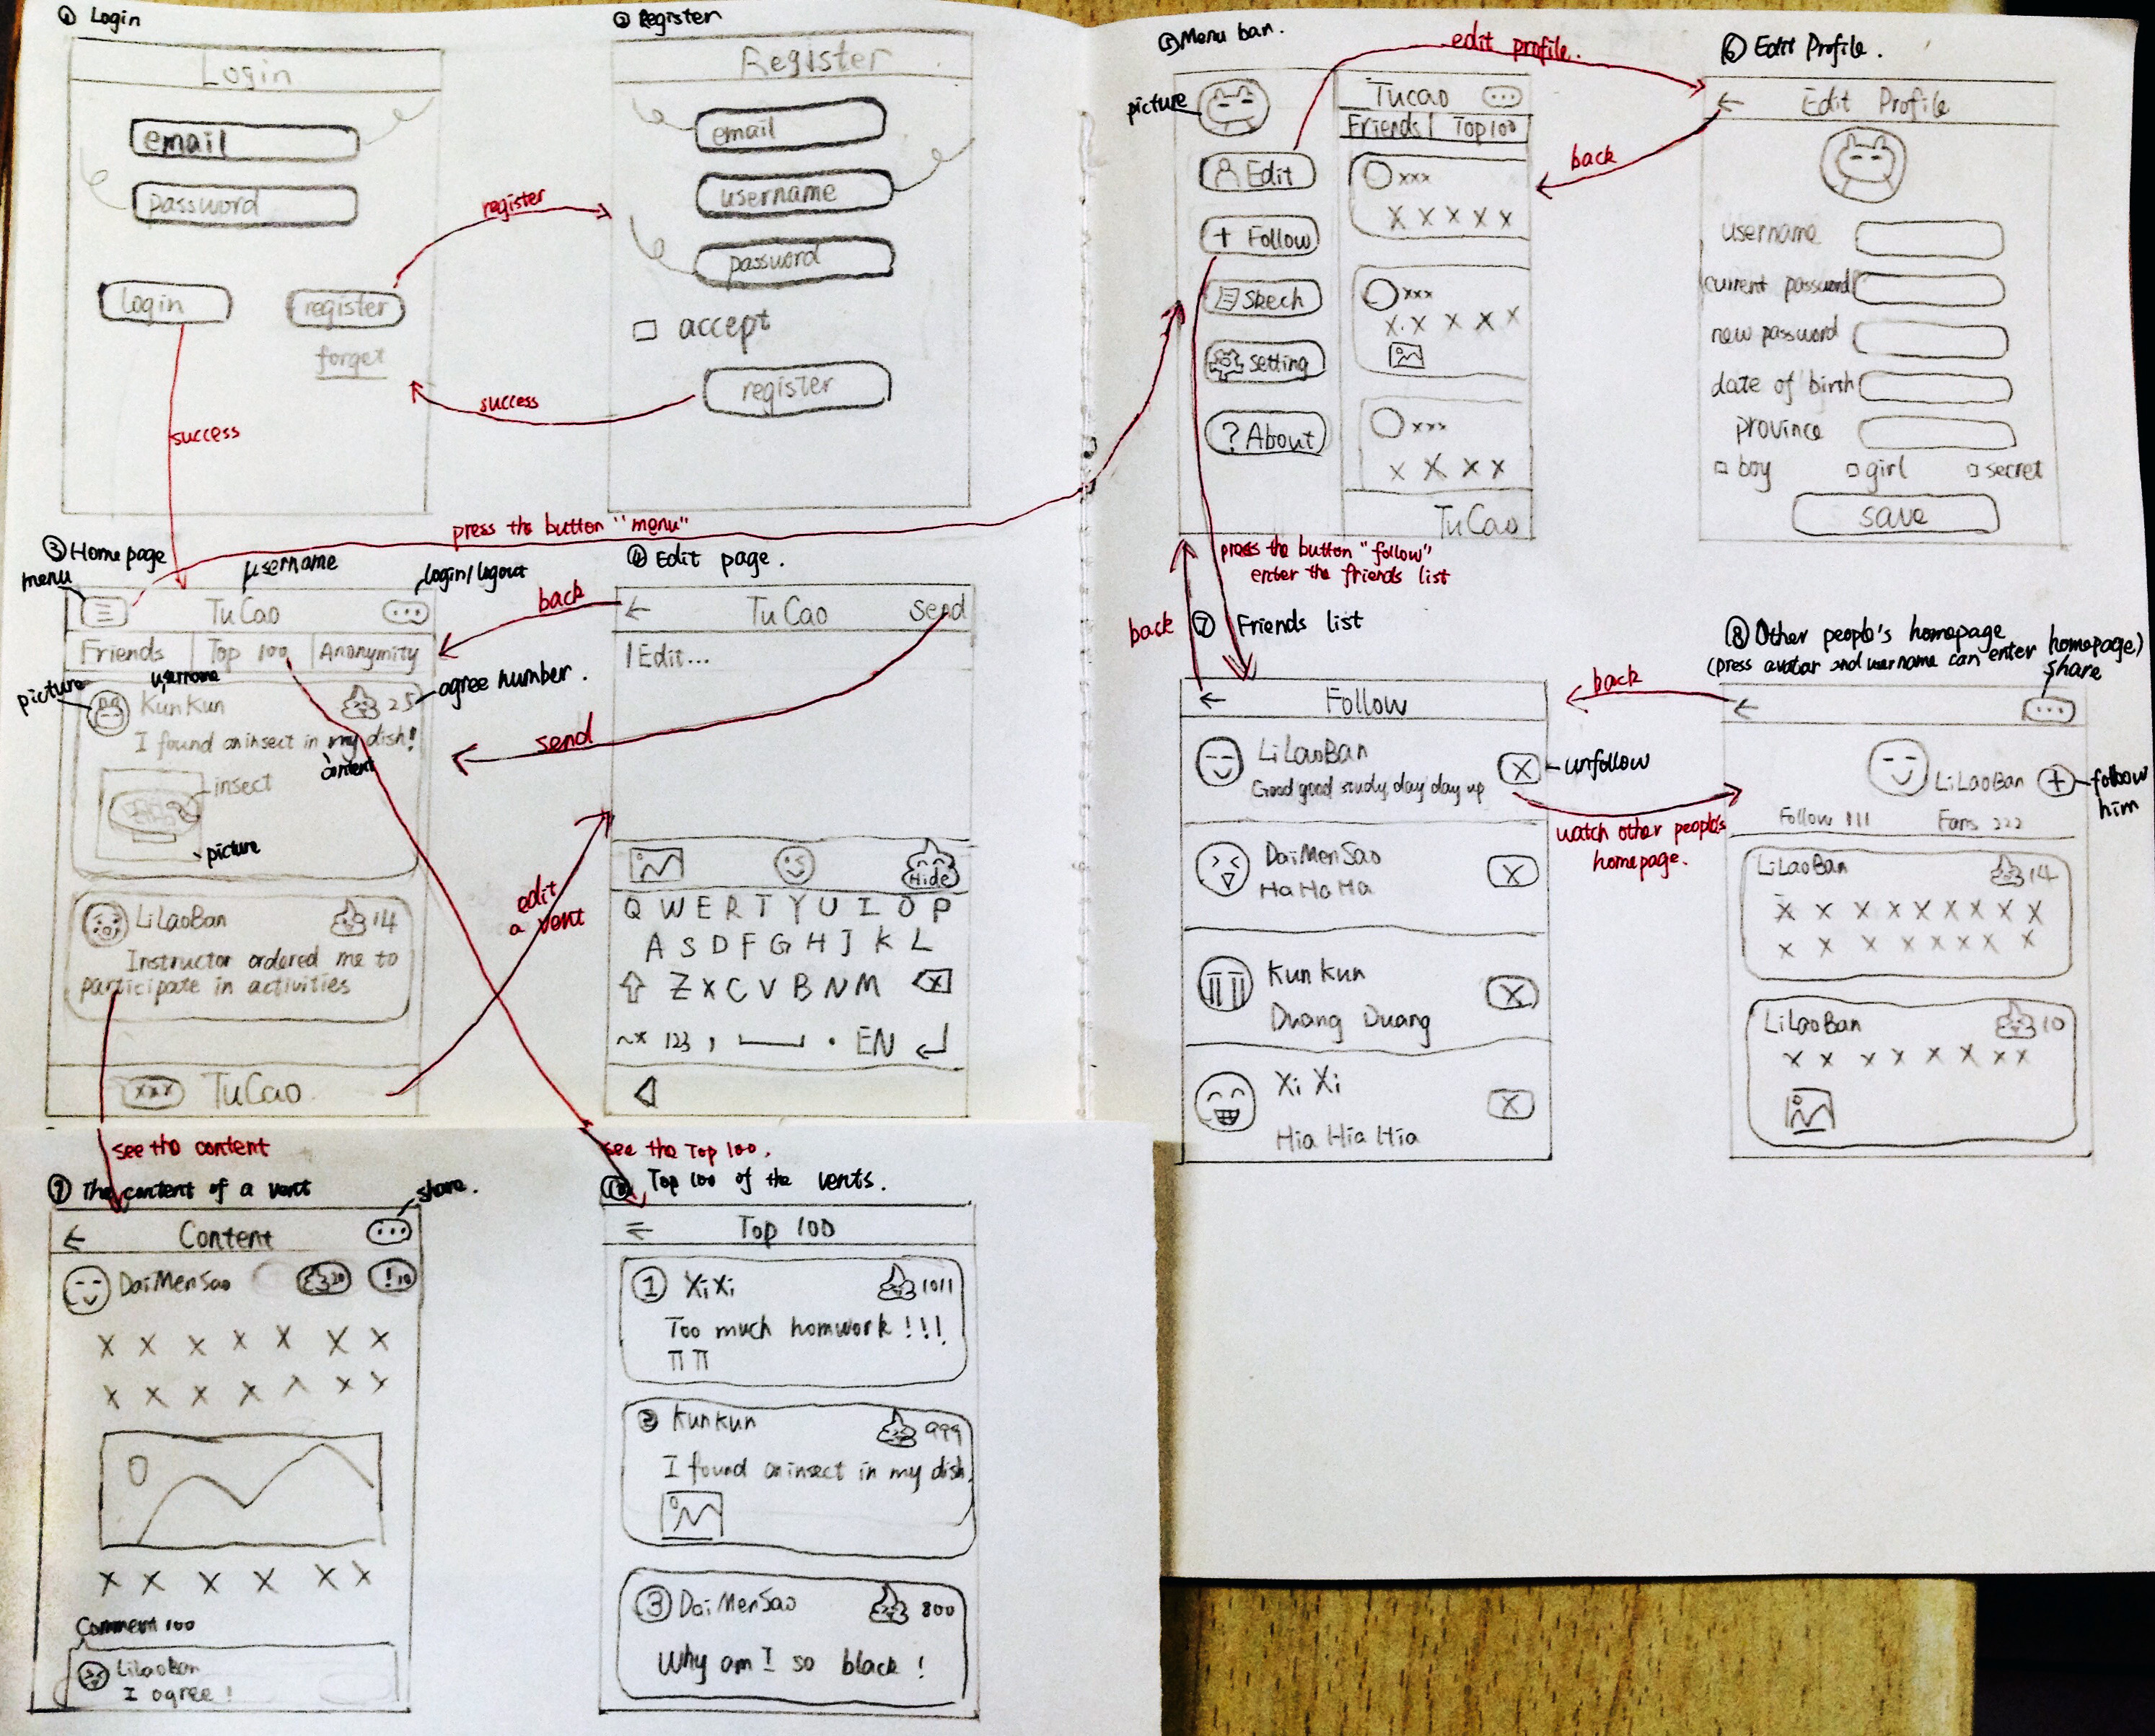 ① Login
Login
email
password
login
register
forget
register
success
② Register
Register
email
username
password
accept
register
success
③ Home page
menu
username
login/logout
TuCao
Friends
Top 100
Anonymity
picture
username
KunKun
25
agree number.
I found an insect in my dish!
content
insect
picture
LiLaoBan
14
Instructor ordered me to
participate in activities
xxx
TuCao
press the button "menu"
④ Edit page.
back
TuCao
send
Edit...
send
edit
a vent
Hide
Q W E R T Y U I O P
A S D F G H J K L
Z X C V B N M
123 , . EN
⑤ Menu bar.
picture
Edit
+ Follow
Skech
setting
? About
Tucao
Friends
Top100
xxx
X X X X X
xxx
X X X X X
xxx
X X X X
TuCao
edit profile.
back
press the button "follow"
enter the friends list
⑥ Edit Profile.
Edit Profile
username
current password
new password
date of birth
province
boy
girl
secret
save
⑦ Friends list
back
Follow
LiLaoBan
Good good study, day day up
X
unfollow
DaiMenSao
Ha Ha Ha
X
Kun kun
Duang Duang
X
Xi Xi
Hia Hia Hia
X
watch other people's
homepage.
⑧ Other people's homepage
(press avatar and username can enter homepage)
share
back
LiLaoBan
+
follow
him
Follow 111
Fans 222
LiLaoBan
14
X X X X X X X X
X X X X X X X
LiLaoBan
10
X X X X X X X X
see the content
⑨ The content of a vent
share.
Content
DaiMenSao
20
! 10
X X X X X X X
X X X X X X X
X X X X X X
Comment 100
LiLaoBan
I agree!
see the Top 100.
⑩ Top 100 of the vents.
Top 100
① XiXi
1011
Too much homwork !!!
TT
② KunKun
999
I found an insect in my dish.
③ DaiMenSao
800
Why am I so black !